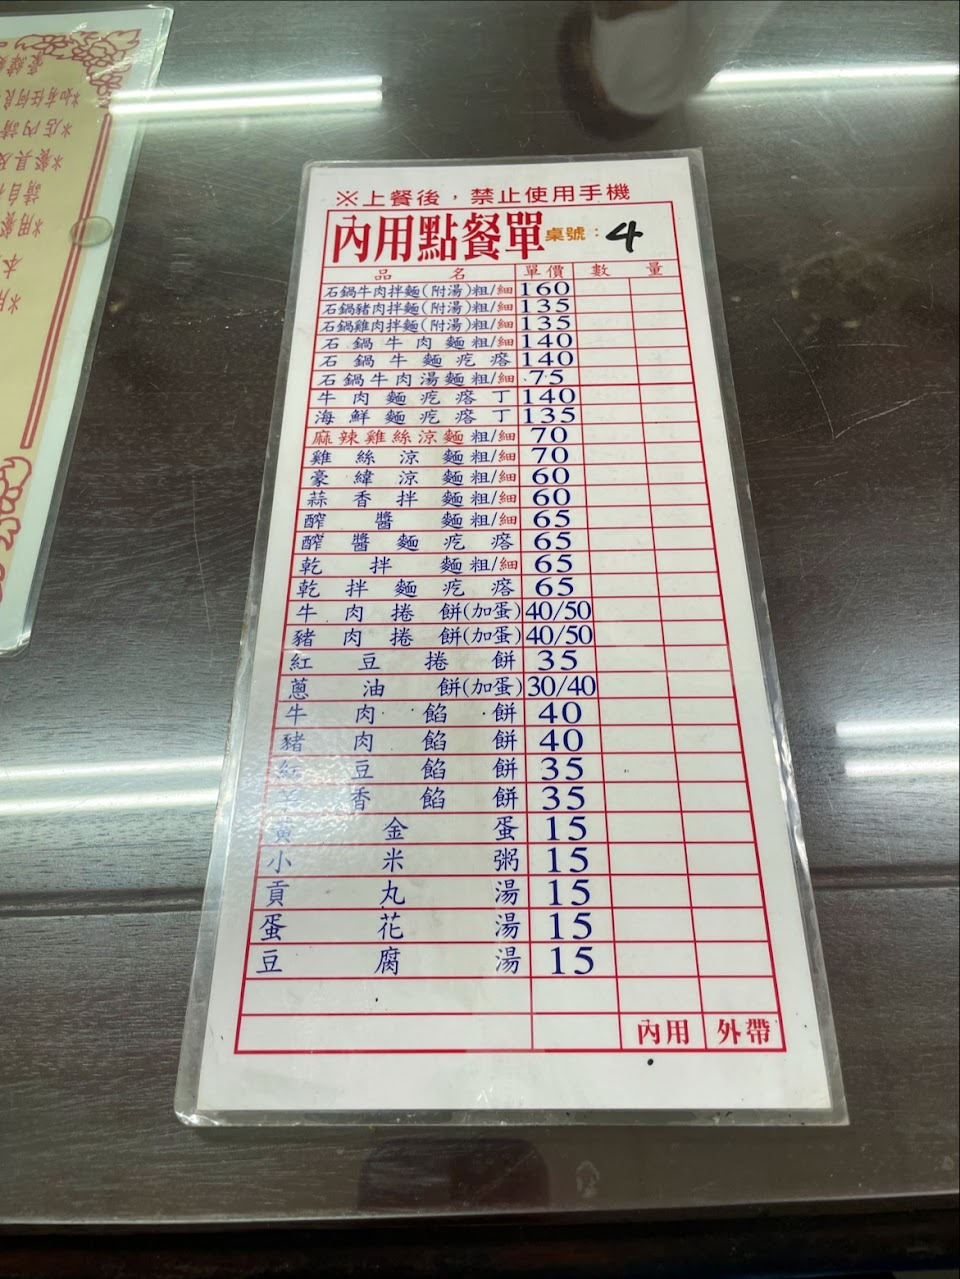 ※上餐後，禁止使用手機
內用點餐單 桌號：4
品名 單價 數量
石鍋牛肉拌麵(附湯)粗/細 160
石鍋豬肉拌麵(附湯)粗/細 135
石鍋雞肉拌麵(附湯)粗/細 135
石鍋牛肉麵粗/細 140
石鍋牛麵疙瘩 140
石鍋牛肉湯麵粗/細 75
牛肉麵疙瘩丁 140
海鮮麵疙瘩丁 135
麻辣雞絲涼麵粗/細 70
雞絲涼麵粗/細 70
豪緯涼麵粗/細 60
蒜香拌麵粗/細 60
醡醬麵粗/細 65
醡醬麵疙瘩 65
乾拌麵粗/細 65
乾拌麵疙瘩 65
牛肉捲餅(加蛋) 40/50
豬肉捲餅(加蛋) 40/50
紅豆捲餅 35
蔥油餅(加蛋) 30/40
牛肉餡餅 40
豬肉餡餅 40
紅豆餡餅 35
香餡餅 35
黃金蛋 15
小米粥 15
貢丸湯 15
蛋花湯 15
豆腐湯 15
內用 外帶
※如有任何
※店內請
※餐具
請自
※用餐
本
※用